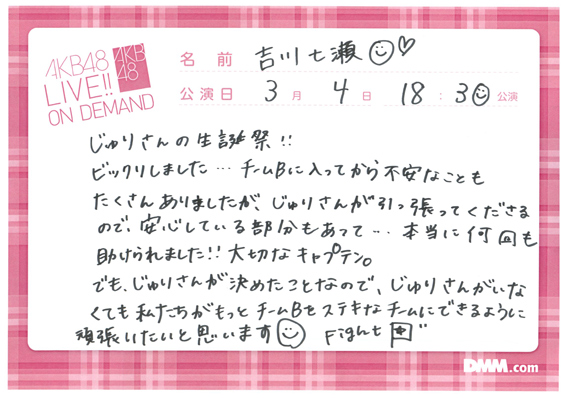 AKB48
LIVE!!
ON DEMAND
AKB
48
名前 吉川七瀬
公演日 3月 4日 18:30公演
じゅりさんの生誕祭!!
ビックリしました… チームBに入ってから不安なことも
たくさんありましたが、じゅりさんが引っ張ってくださる
ので、安心している部分もあって… 本当に何回も
助けられました!! 大切なキャプテン。
でも、じゅりさんが決めたことなので、じゅりさんがいな
くても私たちがもっとチームBをステキなチームにできるように
頑張いたいと思います Fight
DMM.com